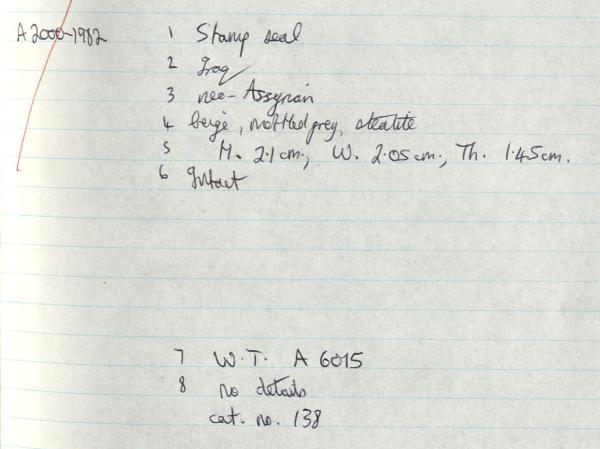 A 2000-1982 1 Stamp seal
2 Iraq
3 neo-Assyrian
4 beige, mottled grey, steatite
5 H. 2.1 cm., W. 2.05 cm., Th. 1.45 cm.
6 Intact
7 W.T. A 6015
8 no details
cat. no. 138